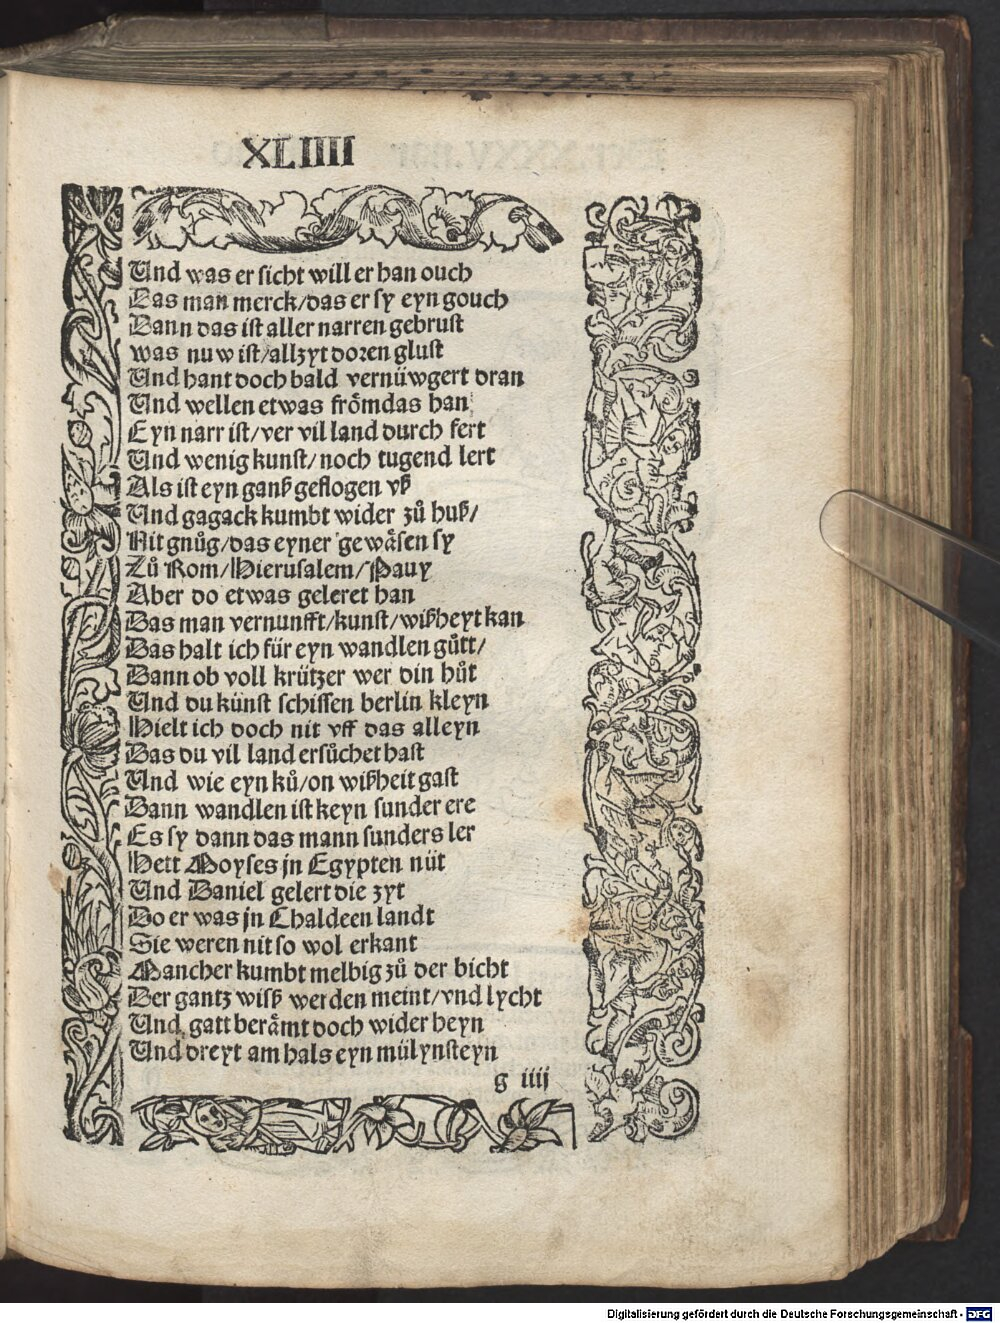 XLIIII
Und was er sicht will er han ouch
Das man merck/das er sy eyn gouch
Dann das ist aller narren gebrust
was nuw ist/allzyt doren glust
Und hant doch bald vernüwgert dran
Und wellen etwas froͤmdas han
Eyn narr ist/ver vil land durch fert
Und wenig kunst/noch tugend lert
Als ist eyn ganß geflogen vß
Und gagack kumbt wider zuͦ huß/
Nit gnuͦg/das eyner gewaͤsen sy
Zuͦ Rom/Hierusalem/Pauy
Aber do etwas geleret han
Das man vernunfft/kunst/wißheyt kan
Das halt ich für eyn wandlen guͦtt/
Dann ob voll krützer wer din huͦt
Und du künst schissen berlin kleyn
Hielt ich doch nit vff das alleyn
Das du vil land ersuͦchet hast
Und wie eyn kuͦ/on wißheit gast
Dann wandlen ist keyn sunder ere
Es sy dann das mann sunders ler
Hett Moyses jn Egypten nüt
Und Daniel gelert die zyt
Do er was jn Chaldeen landt
Sie weren nit so wol erkant
Mancher kumbt melbig zuͦ der bicht
Der gantz wiß werden meint/vnd lycht
Und gatt beraͤmt doch wider heyn
Und dreyt am hals eyn mülynsteyn
g iiij
Digitalisierung gefördert durch die Deutsche Forschungsgemeinschaft - DFG